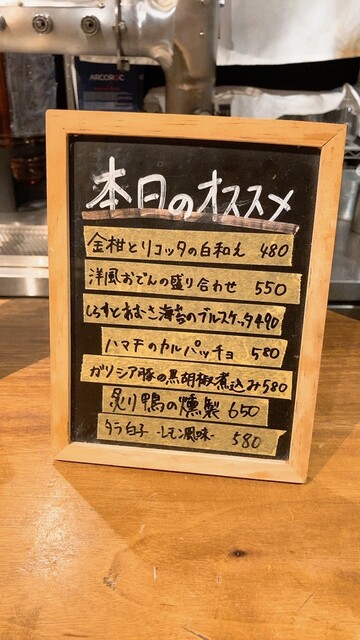 ARCOROC
本日のオススメ
金柑とリコッタの白和え 480
洋風おでんの盛り合わせ 550
しらすとあおさ海苔のブルスケッタ490
ハマチのカルパッチョ 580
ガリシア豚の黒胡椒煮込み580
炙り鴨の燻製 650
タラ白子 -レモン風味- 580